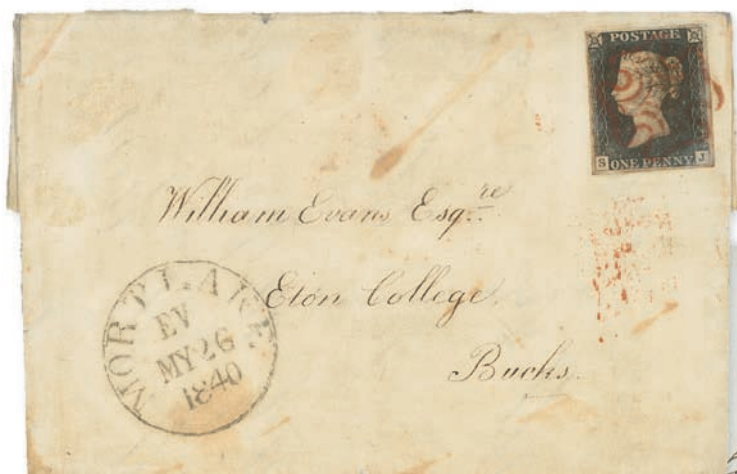 POSTAGE
S ONE PENNY J
William Evans Esq.re
Eton College,
Bucks.
MORTLAKE
EV
MY 26
1840